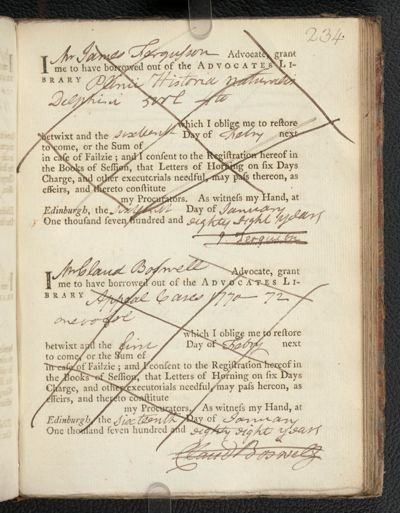 234.
I Mr James Ferguson Advocate, grant
me to have borrowed out of the ADVOCATES LI-
BRARY Plinii Historia Naturalis
Delphini
which I oblige me to restore
betwixt and the sixteenth Day of Febry next
to come, or the Sum of
in case of Failzie; and I consent to the Registration hereof in
the Books of Session, that Letters of Horning on six Days
Charge, and other executorials needful, may pass thereon, as
effeirs, and thereto constitute
my Procurators. As witness my Hand, at
Edinburgh, the Sixteenth Day of January
One thousand seven hundred and eighty eight years
J. Ferguson
I Mr Claud Boswell Advocate, grant
me to have borrowed out of the ADVOCATES LI-
BRARY Appeal Cases 1770-72
one vol
which I oblige me to restore
betwixt and the Day of Febry next
to come, or the Sum of
in case of Failzie; and I consent to the Registration hereof in
the Books of Session, that Letters of Horning on six Days
Charge, and other executorials needful, may pass hereon, as
effeirs, and thereto constitute
my Procurators. As witness my Hand, at
Edinburgh, the Sixteenth Day of January
One thousand seven hundred and eighty eight years
Claud Boswell